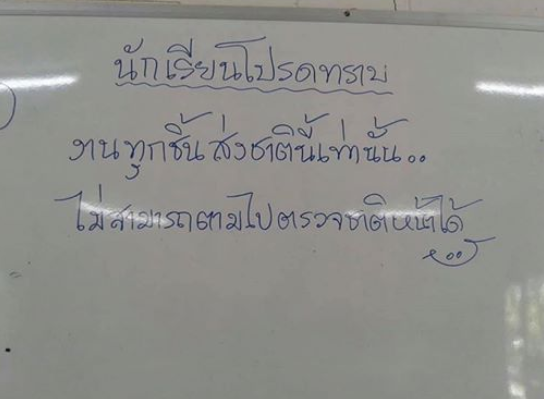 นักเรียนโปรดทราบ
งานทุกชิ้นส่งชาตินี้เท่านั้น..
ไม่สามารถตามไปตรวจชาติหน้าได้